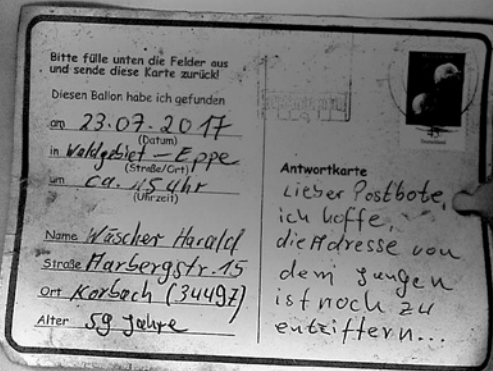 Bitte fülle unten die Felder aus
und sende diese Karte zurück!
Diesen Ballon habe ich gefunden
am 23.07.2017
(Datum)
in Waldgebiet – Eppe
(Straße/Ort)
um ca. 15 Uhr
(Uhrzeit)
Name Wäscher Harald
Straße Marbergstr. 15
Ort Korbach (34497)
Alter 59 Jahre
45
Deutschland
Antwortkarte
Lieber Postbote,
ich hoffe,
die Adresse von
dem Jungen
ist noch zu
entziffern...